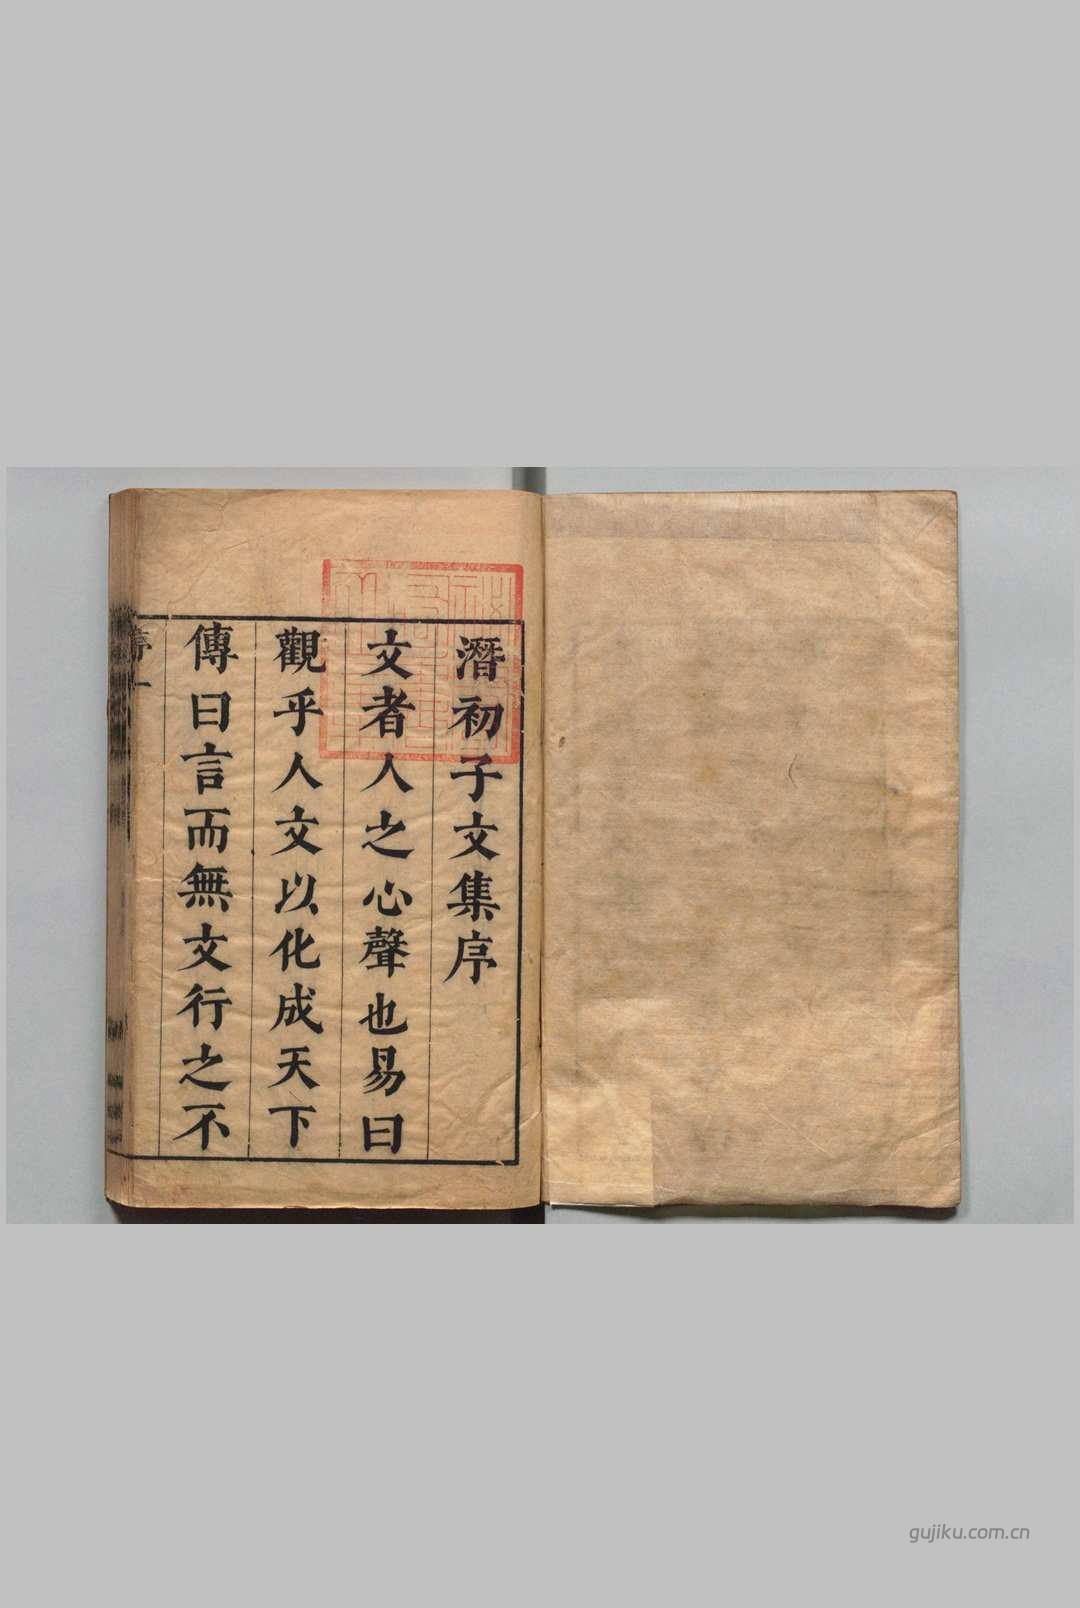 潛初子文集序
文者人之心聲也易曰
觀乎人文以化成天下
傳曰言而無文行之不
序一
gujiku.com.cn